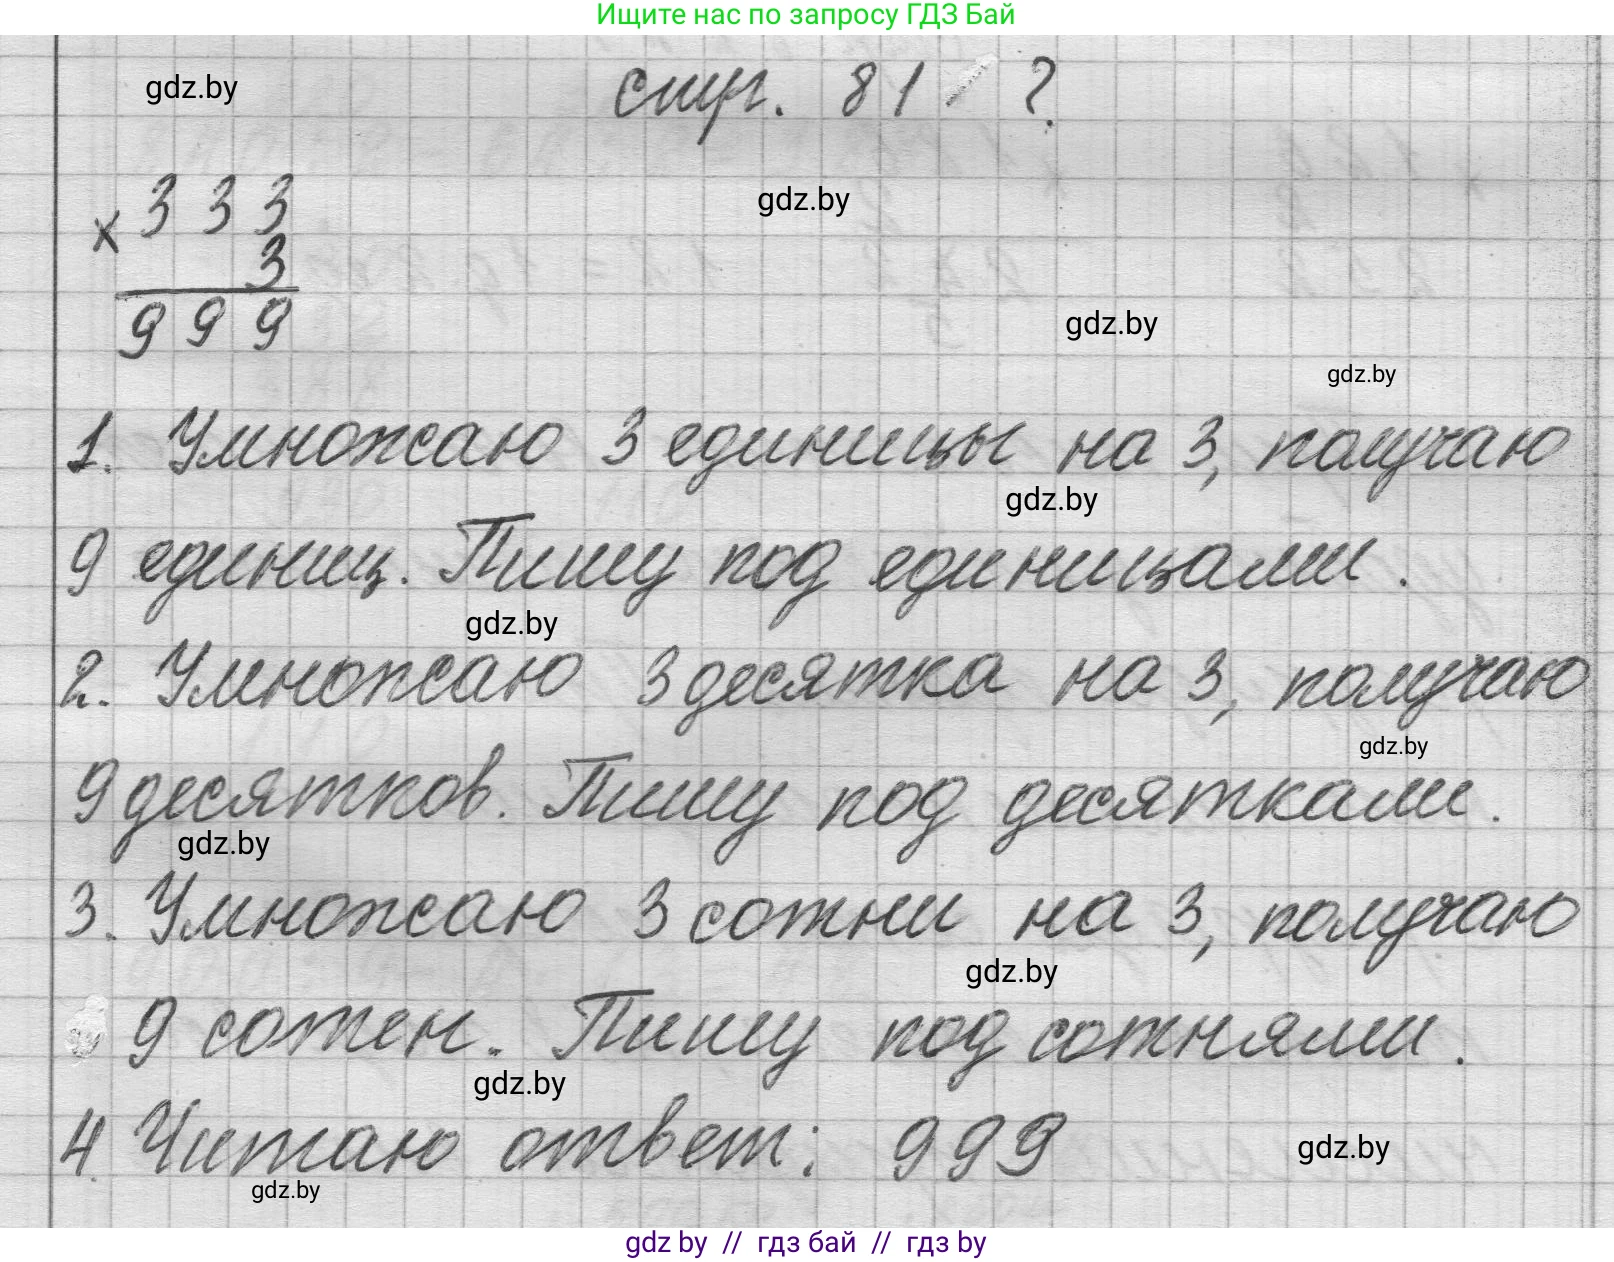 Ищите нас по запросу ГДЗ Бай
gdz.by
стр. 81 ?
gdz.by
× 333
3
999
gdz.by
gdz.by
1. Умножаю 3 единицы на 3, получаю
gdz.by
9 единиц. Пишу под единицами.
gdz.by
2. Умножаю 3 десятка на 3, получаю
gdz.by
9 десятков. Пишу под десятками.
gdz.by
3. Умножаю 3 сотни на 3, получаю
gdz.by
9 сотен. Пишу под сотнями.
gdz.by
4. Читаю ответ: 999
gdz.by
gdz.by
gdz by // гдз бай // гдз by